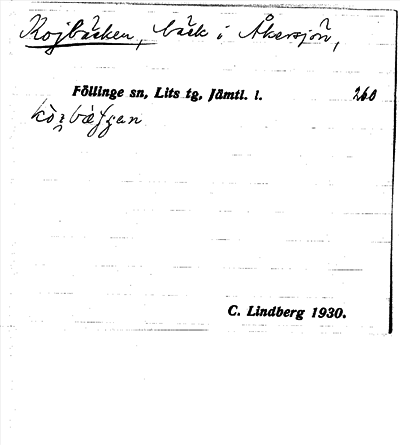 Rojbäcken, bäck i Åkersjön,
Föllinge sn, Lits tg, Jämtl. l. 260
C. Lindberg 1930.